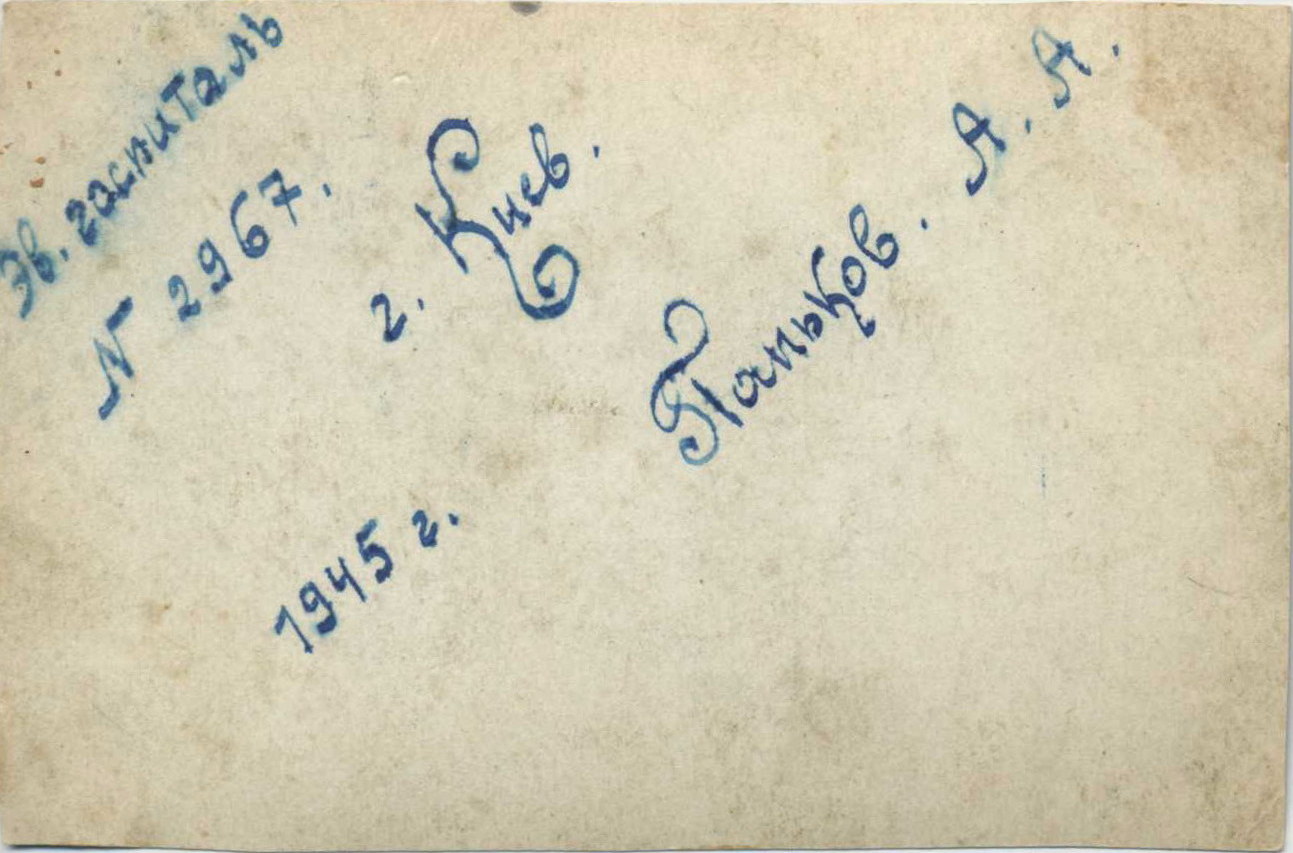 Эв. госпиталь
N 2967.
г. Киев.
Паньков. А. А.
1945 г.